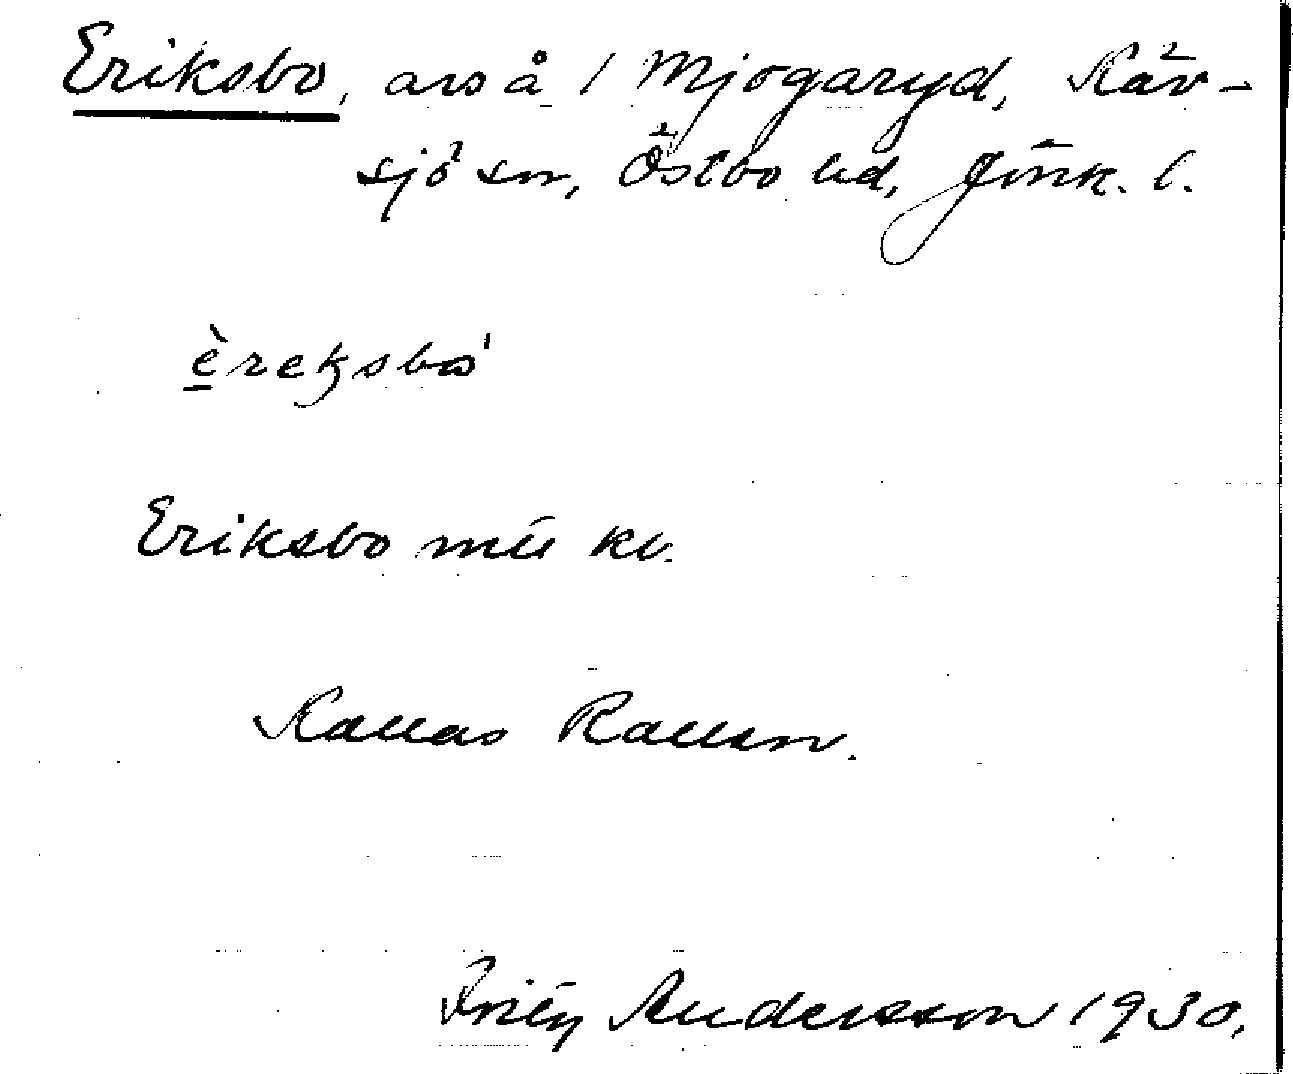 Eriksbo, avs å 1 Mjogaryd, Käv-
sjö sn, Östbo hd, Jönk. l.
èreksbo'
Eriksbo mtl kv.
Kallas Kallen.
Andersson 1930.